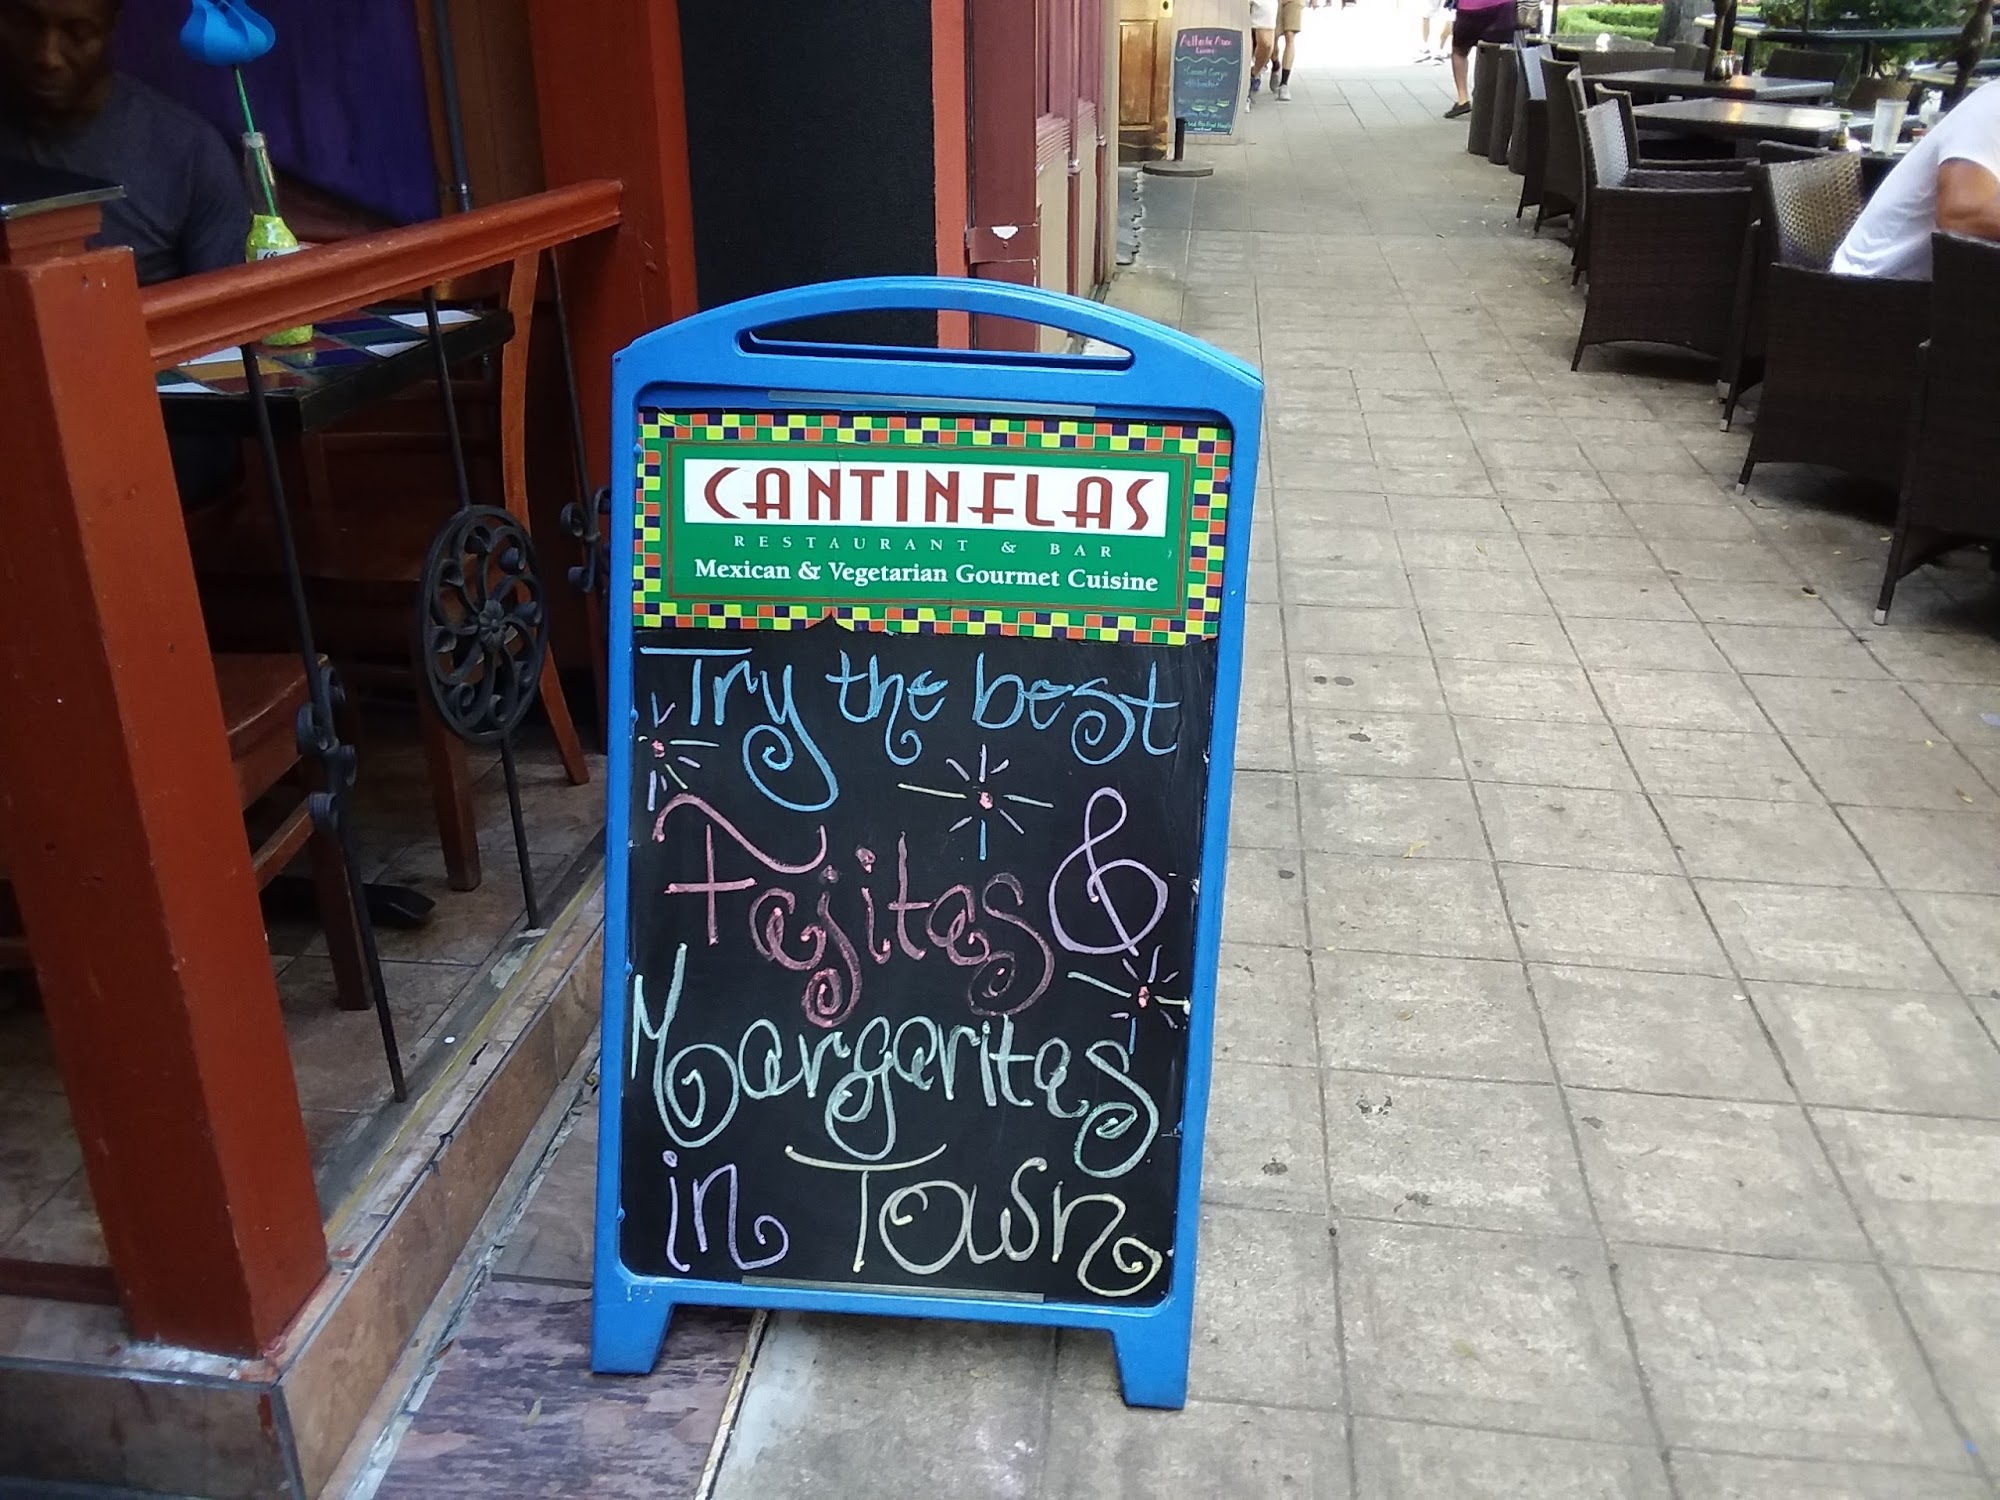 CANTINFLAS
RESTAURANT & BAR
Mexican & Vegetarian Gourmet Cuisine
Try the best
Fajitas &
Margaritas
in Town